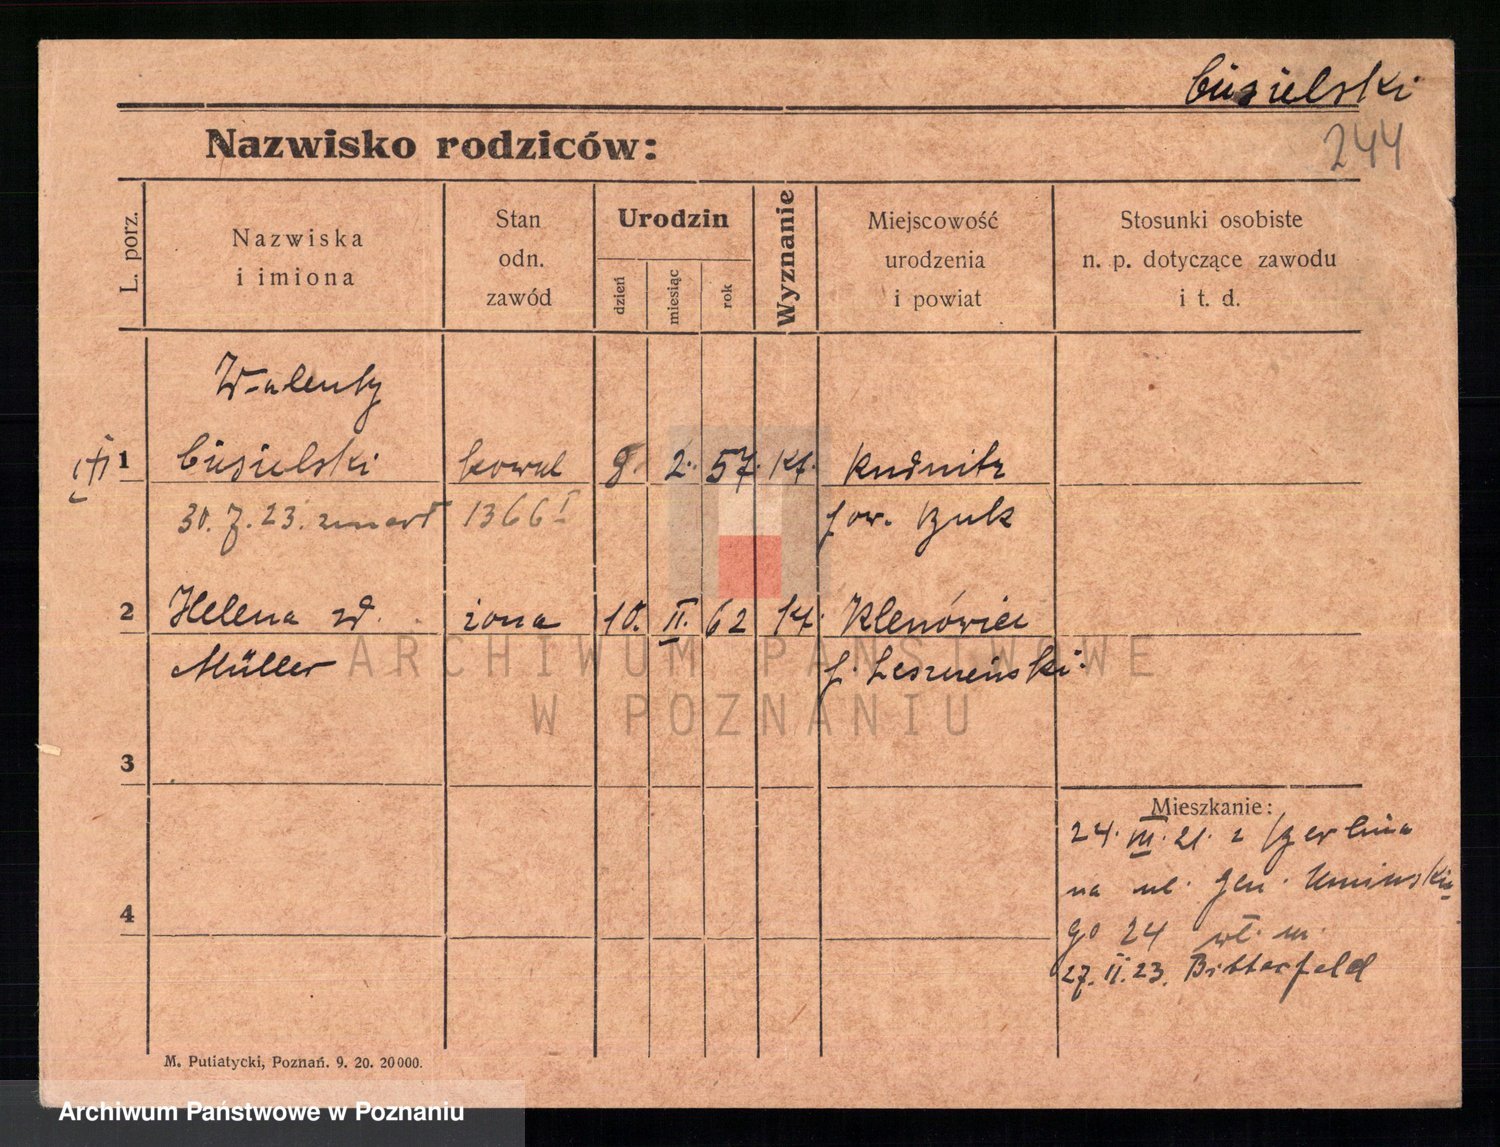 Cusielski
244
Nazwisko rodziców:
L. porz.
Nazwiska
i imiona
Stan
odn.
zawód
Urodzin
dzień
miesiąc
rok
Wyznanie
Miejscowość
urodzenia
i powiat
Stosunki osobiste
n. p. dotyczące zawodu
i t. d.
Walenty
1 Cusielski kowal 9. 2. 57. kt. Rudnitz
30. 7. 23. zmarł 1366 I pow. Buk
2 Helena zd. żona 10. II. 62 kt.
Müller
3
4
Mieszkanie:
24. III. 21. z Berlina
na ul. gen. Umińskie
go 24 wł. m.
27. II. 23. Bitterfeld
M. Putiatycki, Poznań. 9. 20. 20000.
ARCHIWUM PAŃSTWOWE
W POZNANIU
Archiwum Państwowe w Poznaniu